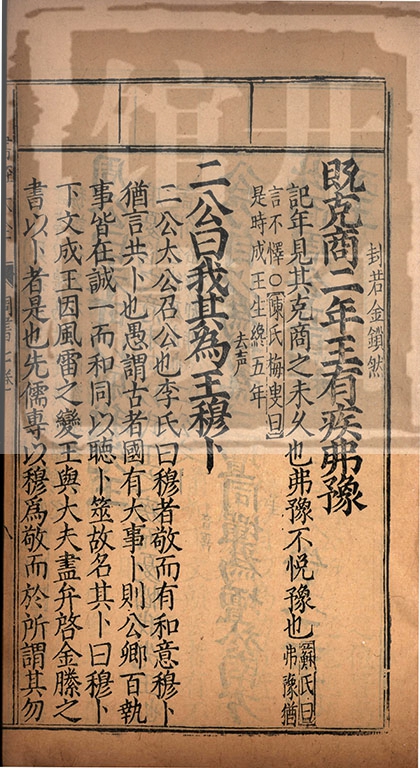 封若金鎖然
既克商二年王有疾弗豫
記年見其克商之未久也弗豫不悦豫也蘇氏曰弗豫猶
言不懌○陳氏梅叟曰
是時成王生纔五年
去声
二公曰我其為王穆卜
二公太公召公也李氏曰穆者敬而有和意穆卜
猶言共卜也愚謂古者國有大事卜則公卿百執
事皆在誠一而和同以聽卜筮故名其卜曰穆卜
下文成王因風雷之變王與大夫盡弁啓金縢之
書以卜者是也先儒専以穆為敬而於所謂其勿